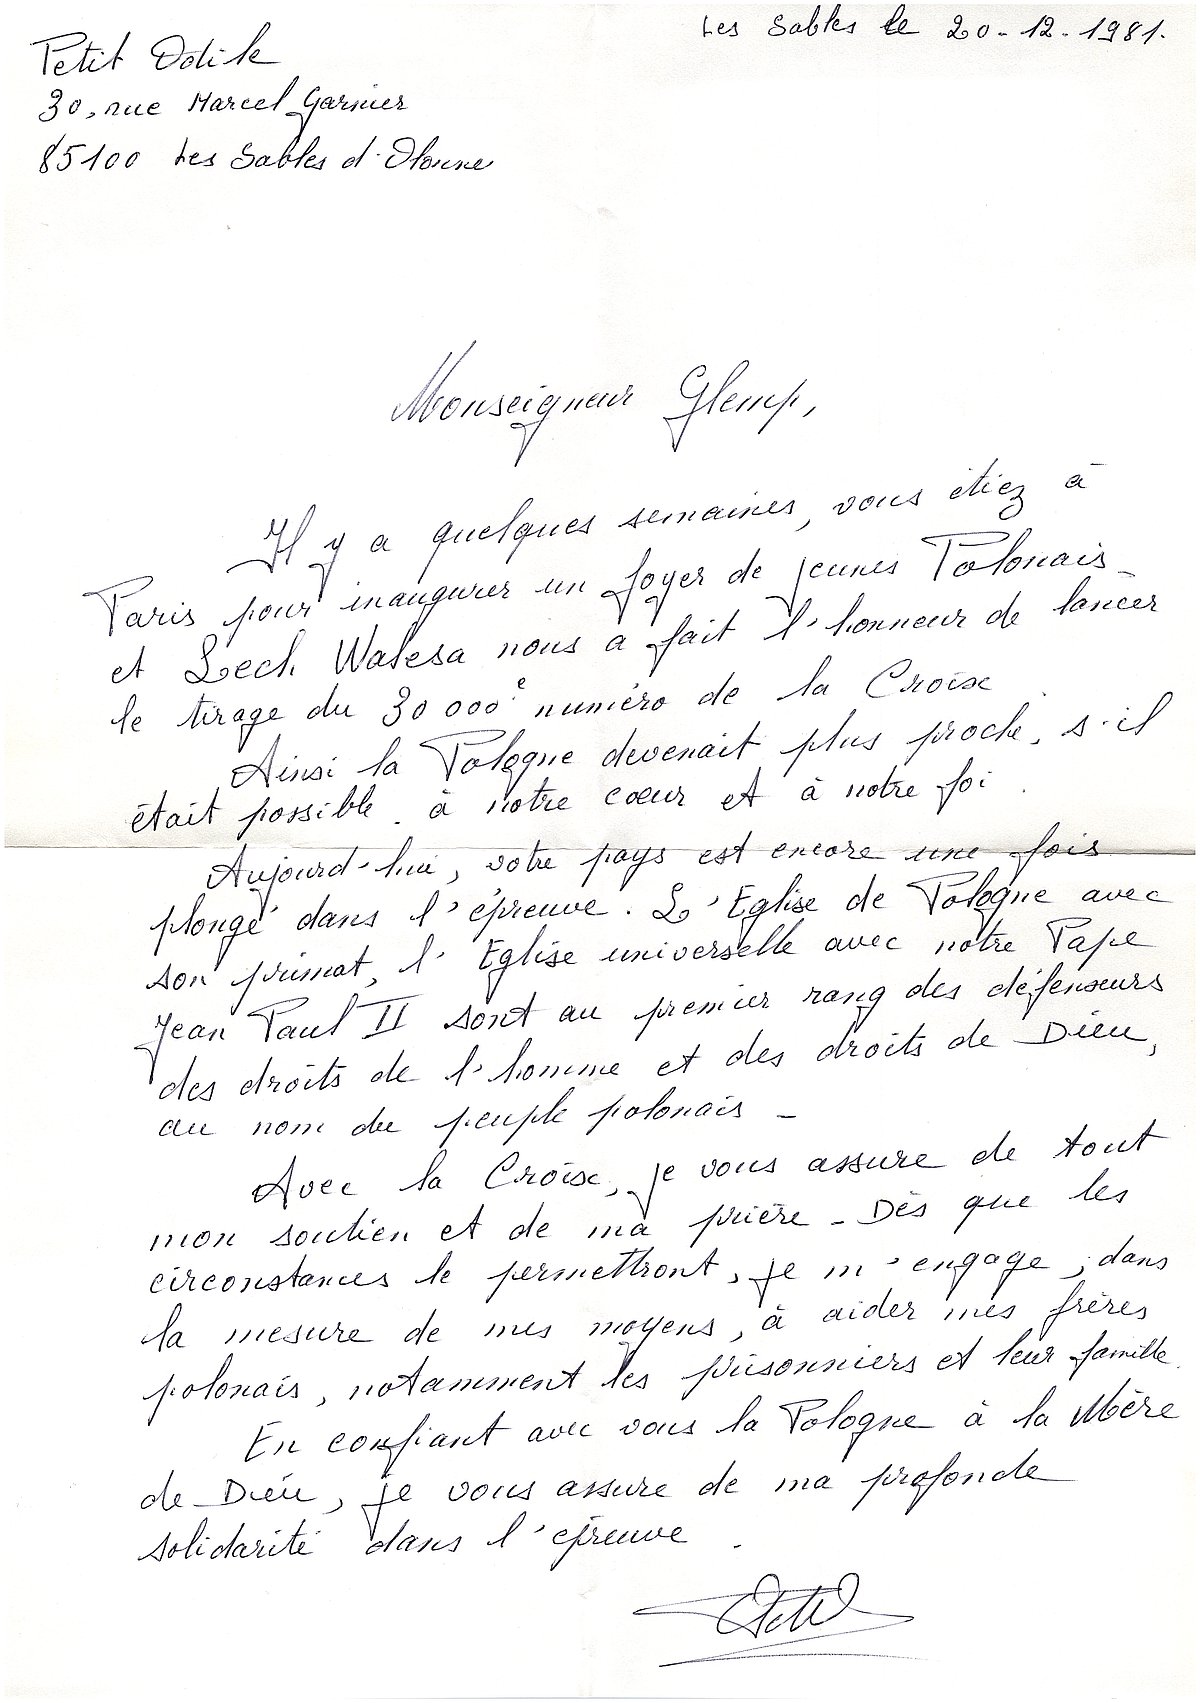 Les Sables le 20-12-1981.
Petit Odile
30, rue Marcel Garnier
85100 Les Sables d'Olonne
Monseigneur Glemp,
Il y a quelques semaines, vous étiez à
Paris pour inaugurer un foyer de jeunes Polonais -
et Lech Walesa nous a fait l'honneur de lancer
le tirage du 30 000e numéro de la Croix.
Ainsi la Pologne devenait plus proche, s'il
était possible, à notre coeur et à notre foi.
Aujourd'hui, votre pays est encore une fois
plongé dans l'épreuve. L'Eglise de Pologne avec
son primat, l'Eglise universelle avec notre Pape
Jean Paul II sont au premier rang des défenseurs
des droits de l'homme et des droits de Dieu,
au nom du peuple polonais -
Avec la Croix, je vous assure de tout
mon soutien et de ma prière - Dès que les
circonstances le permettront, je m'engage, dans
la mesure de mes moyens, à aider mes frères
polonais, notamment les prisonniers et leur famille.
En confiant avec vous la Pologne à la Mère
de Dieu, je vous assure de ma profonde
solidarité dans l'épreuve.